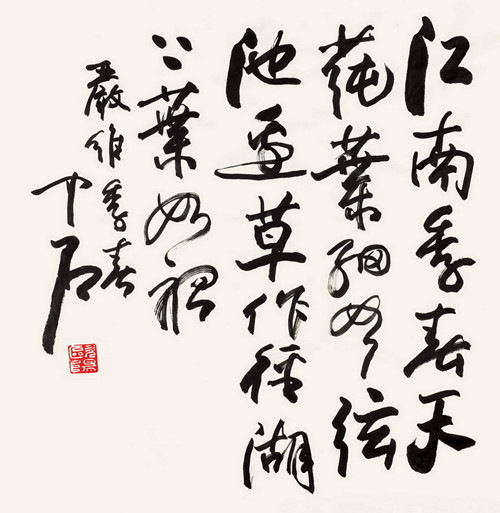 江南季春天
莼葉細如弦
池邊草作徑湖
上葉如船
嚴維季春
中石